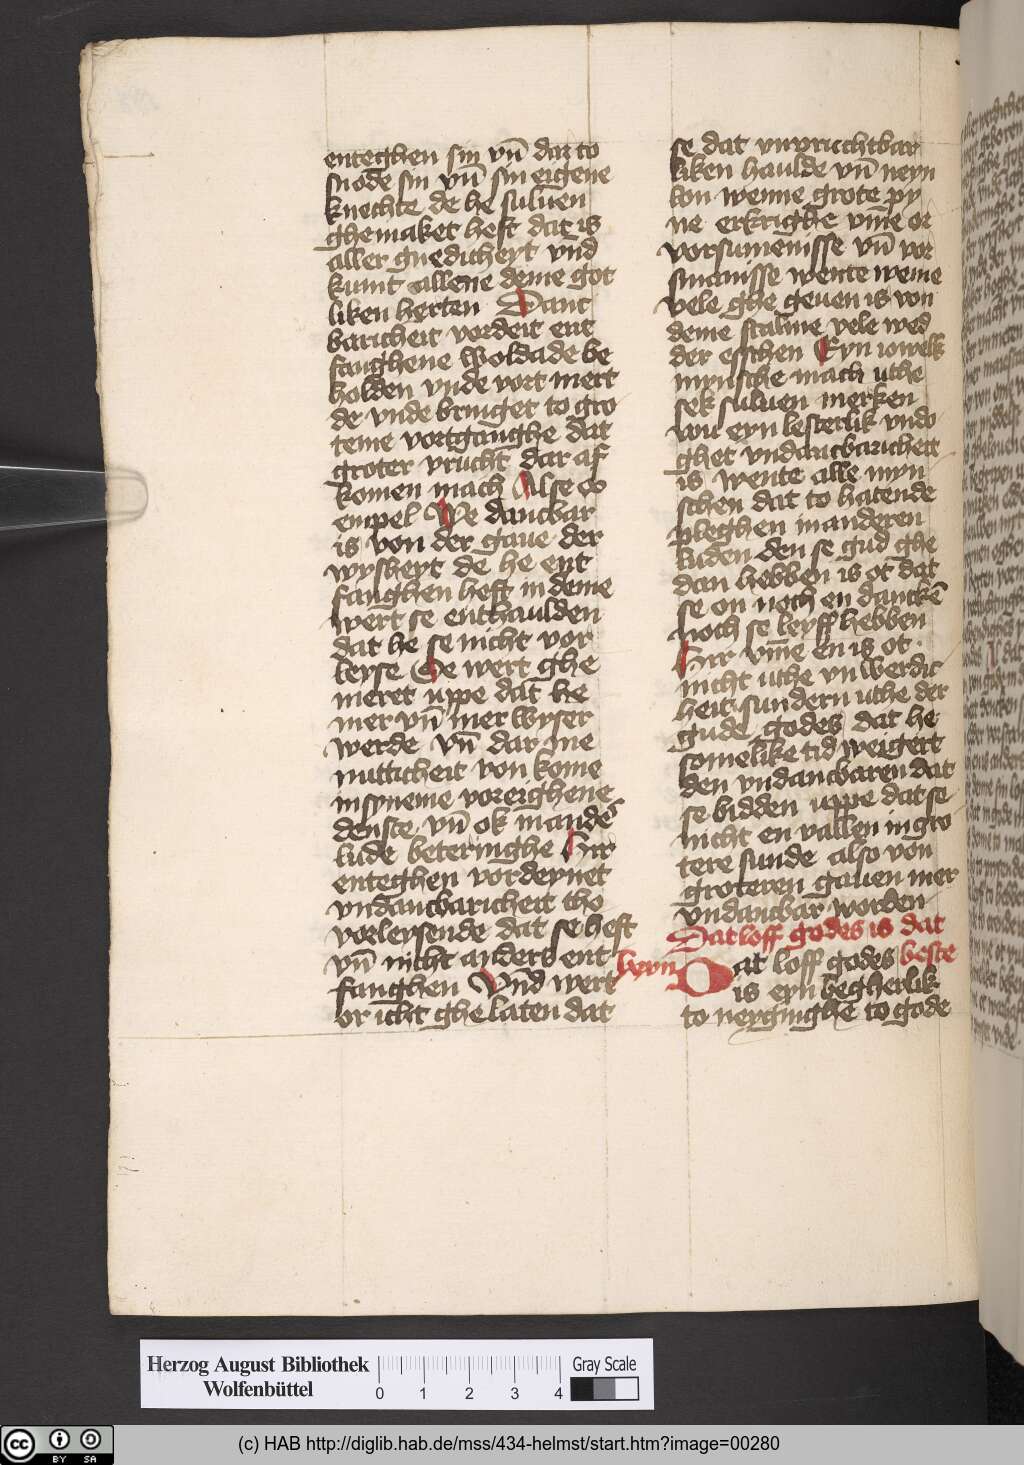 enteghen sin vn̄ dar to
snode sin vn̄ sin eigene
knechte de he suluen
ghemaket heft dat is
aller guedicheyt vnd
kumt allene deme got
liken herten Danc
baricheit vordeit ent
fanghene woldade be
holden vnde vort mert
de vnde bringet to gro
teme vortganghe dat
groter vrucht dar af
komen mach Alse eo
empel We dancbar
is von der gaue der
wysheyt de he ent
fanghen heft in deme
wert se enthaulden
dat he se nicht vor
leyse Se wert ghe
meret uppe dat he
mer vn̄ mer wyser
werde vn̄ dar me
nutticheit von kome
in syneme voreighene
denste vn̄ ok in andes
lude beteringhe Hir
enteghen vordeynet
vndancbaricheit tho
vorleysende dat se heft
vn̄ nicht anders ent
fanghen Vn̄d wert
or icht ghelaten dat
se dat vnvrucchtbar
liken haulde vn̄ neyn
lon wenne grote py
ne erkrighe vme or
vorsumenisse vn̄ vor
smanisse wente weme
vele ghe geuen is von
deme
vele wed
der esschen Eyn iowelk
mynsche mach uthe
sek suluen merken
wu eyn lesterlik vndo
ghet vndancbaricheit
is wente alle myn
schen dat to hatende
pleghen in anderen
luden den se gud ghe
dan hebben is ot dat
se on noch en danckē
noch se leyff hebben
Hir vm̄e en is ot
nicht uthe vn werdic
heit sundern uthe der
gude godes dat he
somelike tid weigert
den vndancbaren dat
se bidden uppe dat se
nicht en vallen in gro
tere sunde also von
groteren gauen mer
vndancbar worden
Dat loff godes is dat
beste
beyn
Dat loff godes
is eyn begherlik
to neyginghe to gode
Herzog August Bibliothek
Wolfenbüttel
0 1 2 3 4
Gray Scale
cc BY SA
(c) HAB http://diglib.hab.de/mss/434-helmst/start.htm?image=00280